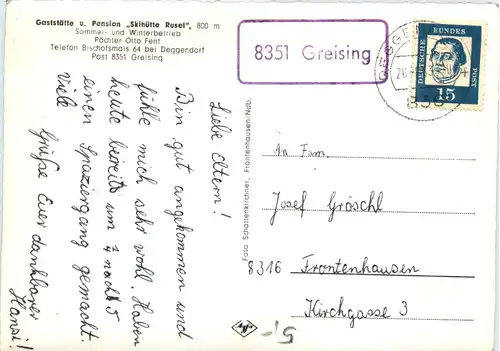 Gaststätte u. Pension „Skihütte Rusel", 800 m
Sommer- und Winterbetrieb
Pächter Otto Fent
Telefon Bischofsmais 64 bei Deggendorf
Post 8351 Greising
8351 Greising
DEUTSCHE BUNDESPOST
15
Liebe Eltern!
Bin gut angekommen und
fühle mich sehr wohl. Haben
heute bereits um ¼ nach 5
einen Spaziergang gemacht.
Viele
Grüße Euer dankbarer
Hansi!
Foto Schattenkirchner, Frontenhausen/Ndb.
An Fam.
Josef Gröschl
8316 Frontenhausen
Kirchgasse 3
Agfa
5,-